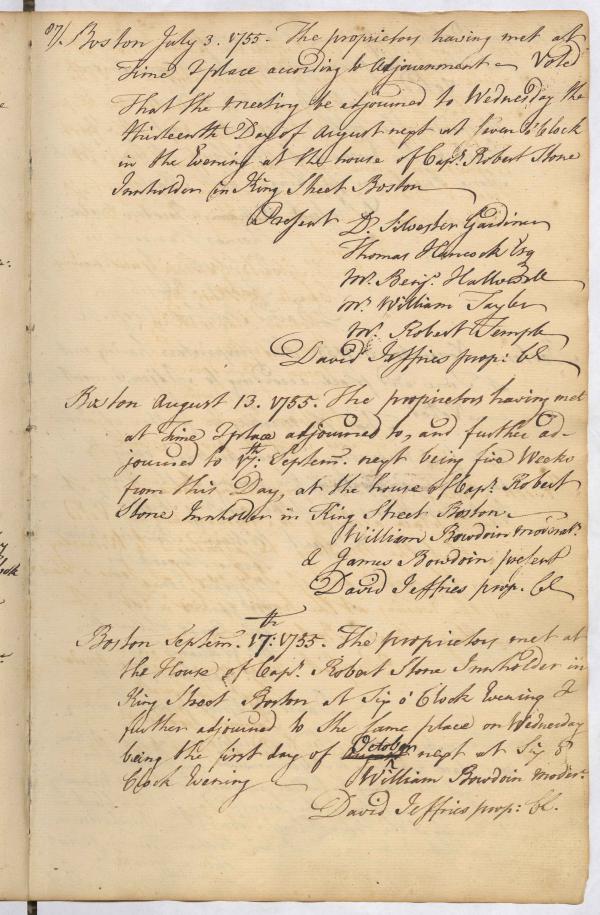 87/. Boston July 3. 1755. The proprietors having met at
time & place according to Adjournment Voted
That the meeting be adjourned to Wednesday the
thirteenth Day of August next at Seven o'Clock
in the Evening at the house of Capt. Robert Stone
Innholder in King Street Boston
Present Dr. Silvester Gardiner
Thomas Hancock Esq
Mr. Benja. Hallowell
Mr. William Tayler
Mr. Robert Temple
David Jeffries prop: Cl
Boston August 13. 1755. The proprietors having met
at Time & place adjourned to, and further ad-
journed to 17th: Septemr. next being five Weeks
from this Day, at the house of Capt. Robert
Stone Innholder in King Street Boston
William Bowdoin moderatr.
& James Bowdoin present
David Jeffries prop. Cl
Boston Septemr. 17th: 1755. The proprietors met at
the House of Capt. Robert Stone Innholder in
King Street Boston at Six o'Clock Evening &
further adjourned to the same place on Wednesday
being the first day of October next at Six o
Clock Evening William Bowdoin moder.
David Jeffries prop: Cl.